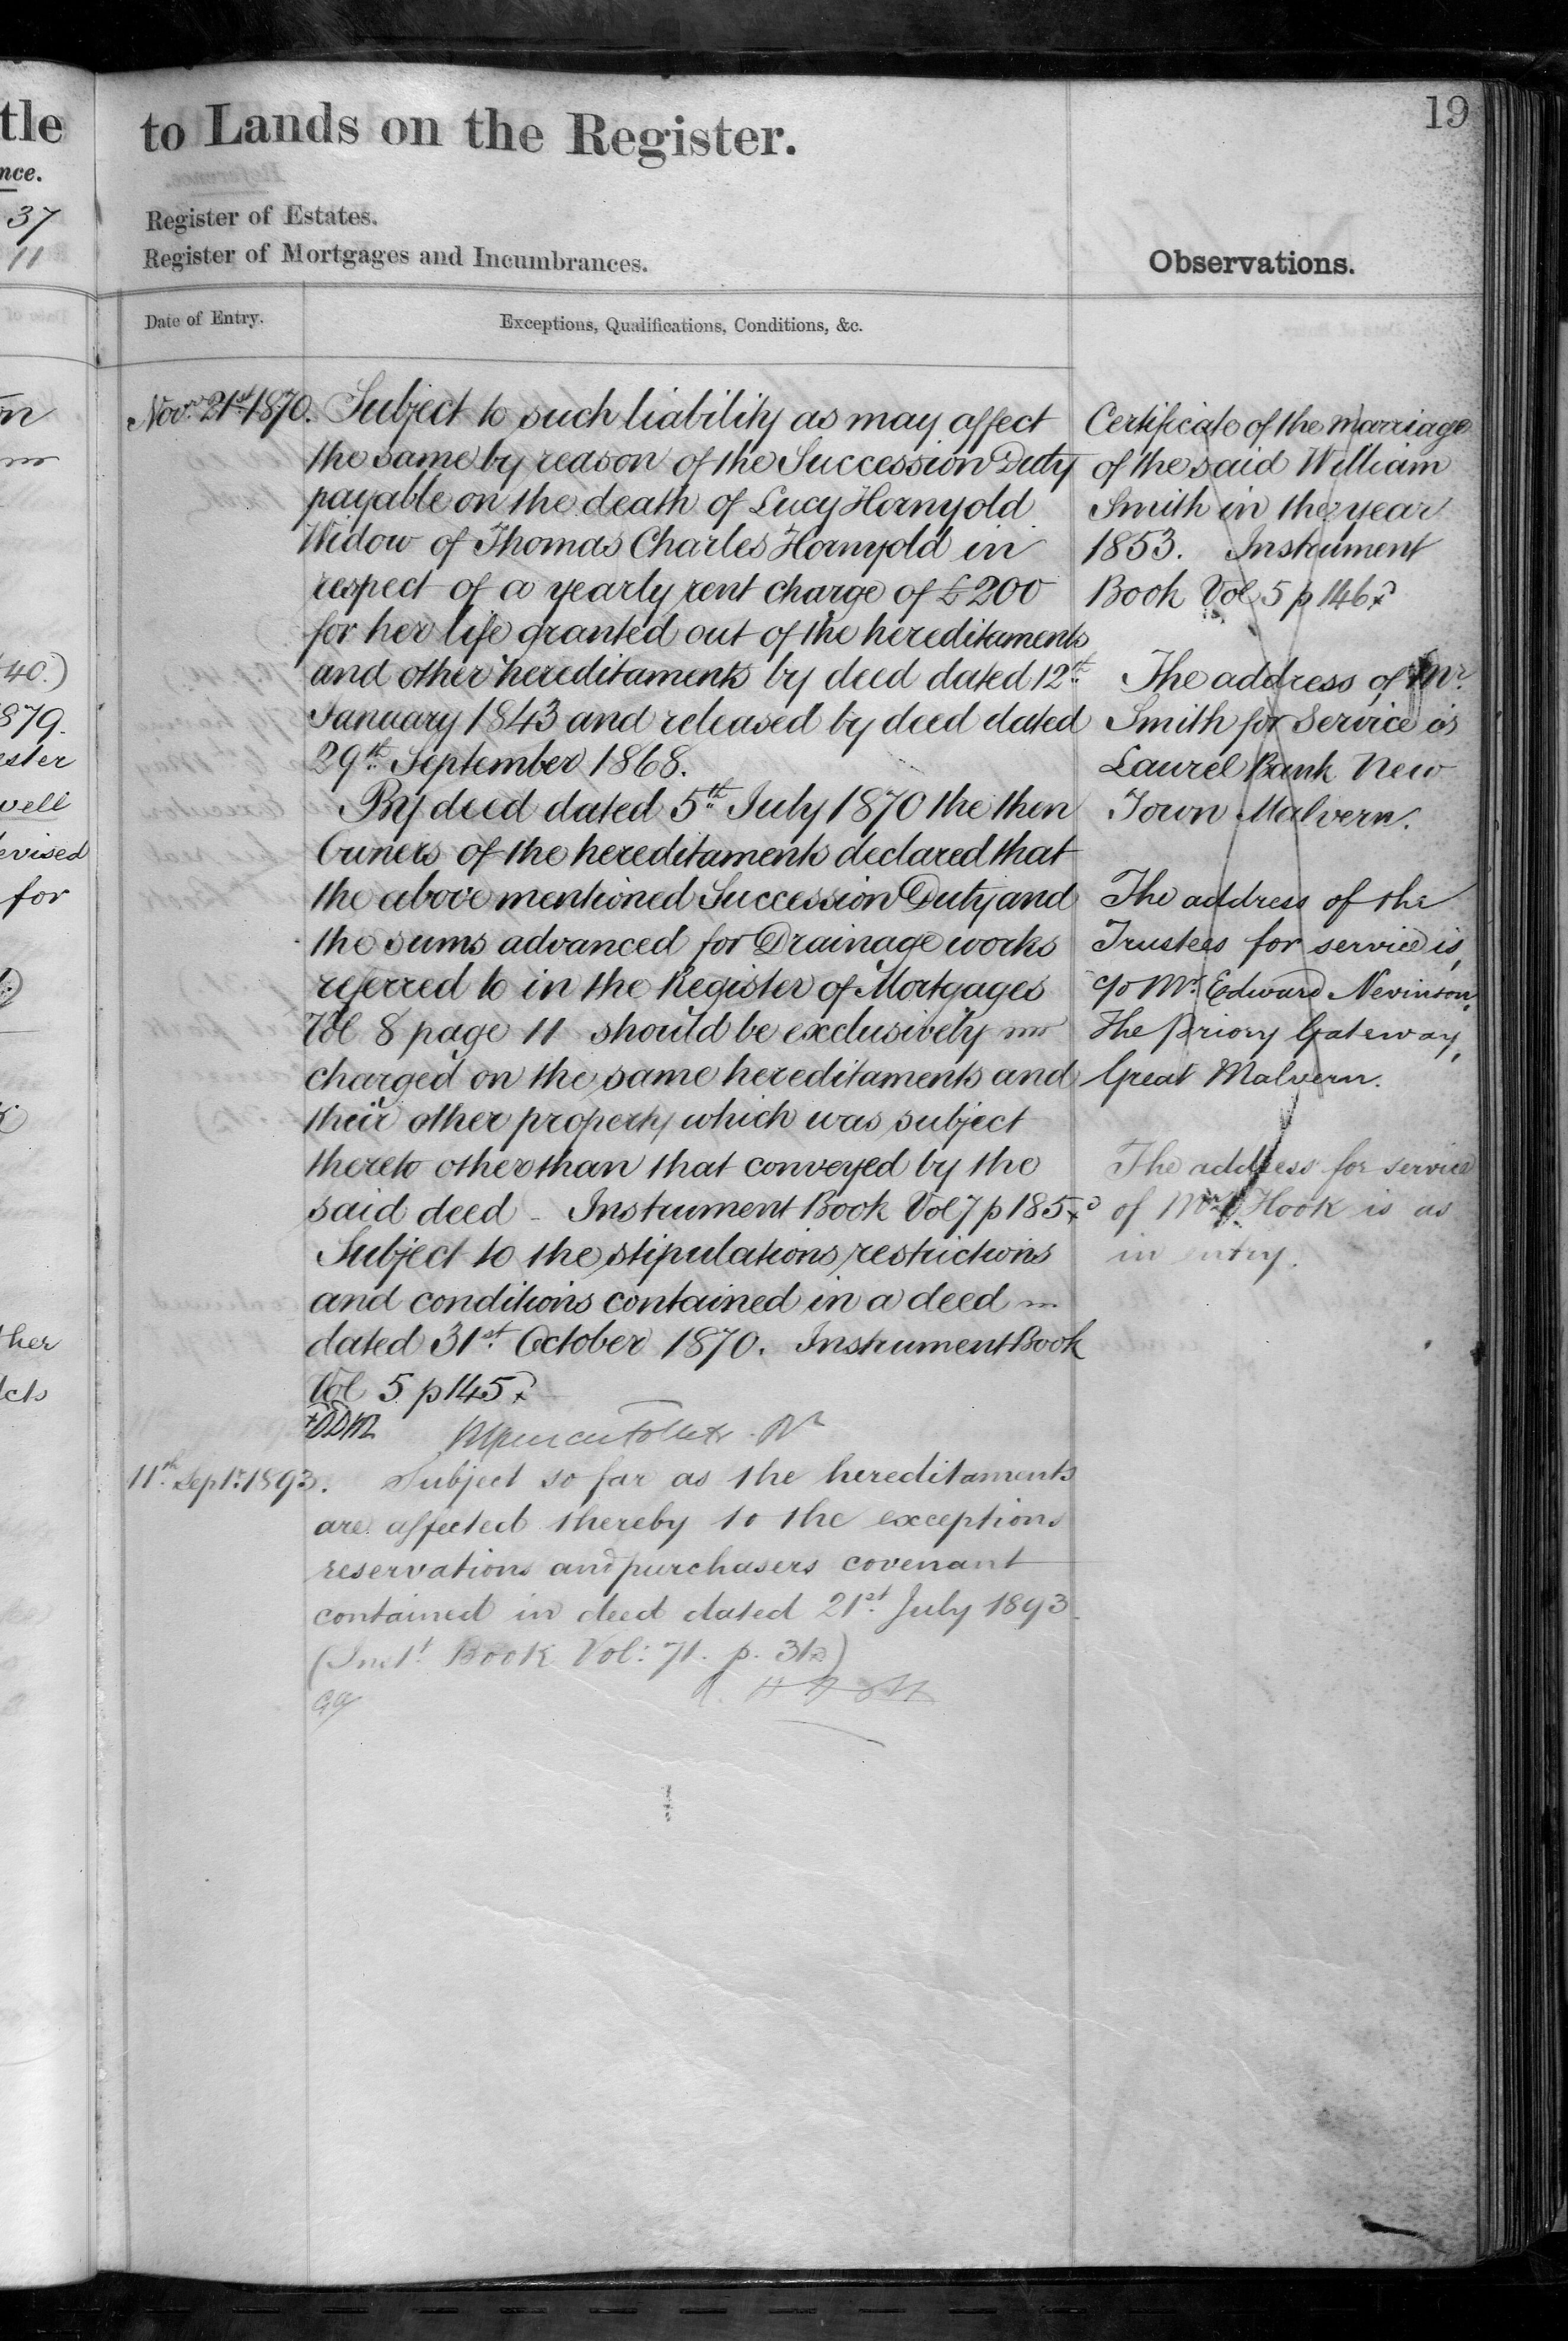 tle
nce.
37
11
on
40.)
1879.
ester
well
evised
for
ther
cts
to Lands on the Register.
19
Register of Estates.
Register of Mortgages and Incumbrances.
Observations.
Date of Entry.
Exceptions, Qualifications, Conditions, &c.
Novr. 21st 1870.
Subject to such liability as may affect
the same by reason of the Succession Duty
payable on the death of Lucy Hornyold
Widow of Thomas Charles Hornyold in
respect of a yearly rent charge of £200
for her life granted out of the hereditaments
and other hereditaments by deed dated 12th
January 1843 and released by deed dated
29th September 1868.
By deed dated 5th July 1870 the then
Owners of the hereditaments declared that
the above mentioned Succession Duty and
the sums advanced for Drainage works
referred to in the Register of Mortgages
Vol 8 page 11 should be exclusively
charged on the same hereditaments and
their other property which was subject
thereto other than that conveyed by the
said deed - Instrument Book Vol 7 p 185
Subject to the stipulations restrictions
and conditions contained in a deed
dated 31st October 1870. Instrument Book
Vol 5 p 145
11th Sept. 1893.
Subject so far as the hereditaments
are affected thereby to the exceptions
reservations and purchasers covenant
contained in deed dated 21st July 1893
(Inst. Book Vol: 71. p. 31)
Certificate of the marriage
of the said William
Smith in the year
1853. Instrument
Book Vol 5 p 146
The address of Mr.
Smith for Service is
Laurel Bank New
Town Malvern.
The address of the
Trustees for service is,
c/o Mr. Edward Nevinson,
The Priory Gateway,
Great Malvern.
The address for service
of Hook is as
in entry.